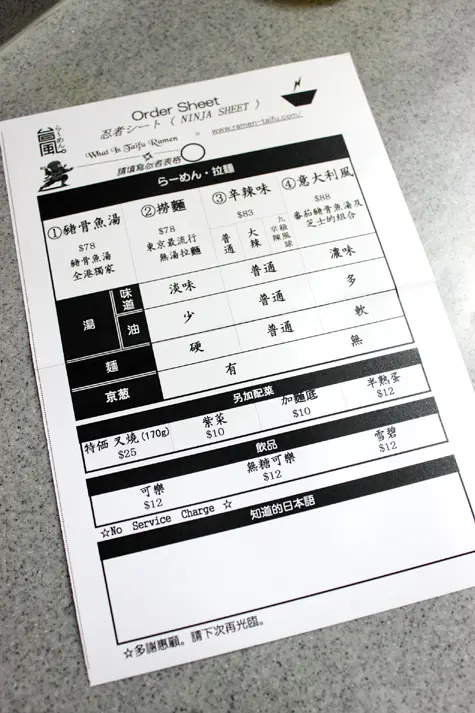 Order Sheet
忍者シート ( NINJA SHEET )
らーめん。
台風。
What Is Taifu Ramen
www.ramen-taifu.com/
請填寫忍者表格
らーめん・拉麵
①豬骨魚湯
$78
豬骨魚湯
全港獨家
②撈麵
$78
東京最流行
無湯拉麵
③辛辣味
$83
普通
大辣
九級颱風辣球
④意大利風
$88
番茄豬骨魚湯及
芝士的組合
湯
味道
淡味 普通 濃味
油
少 普通 多
麵
硬 普通 軟
京葱
有 無
另加配菜
特価 叉燒(170g)
$25
紫菜
$10
加麵底
$10
半熟蛋
$12
飲品
可樂
$12
無糖可樂
$12
雪碧
$12
☆No Service Charge ☆
知道的日本語
☆多謝惠顧。請下次再光臨。